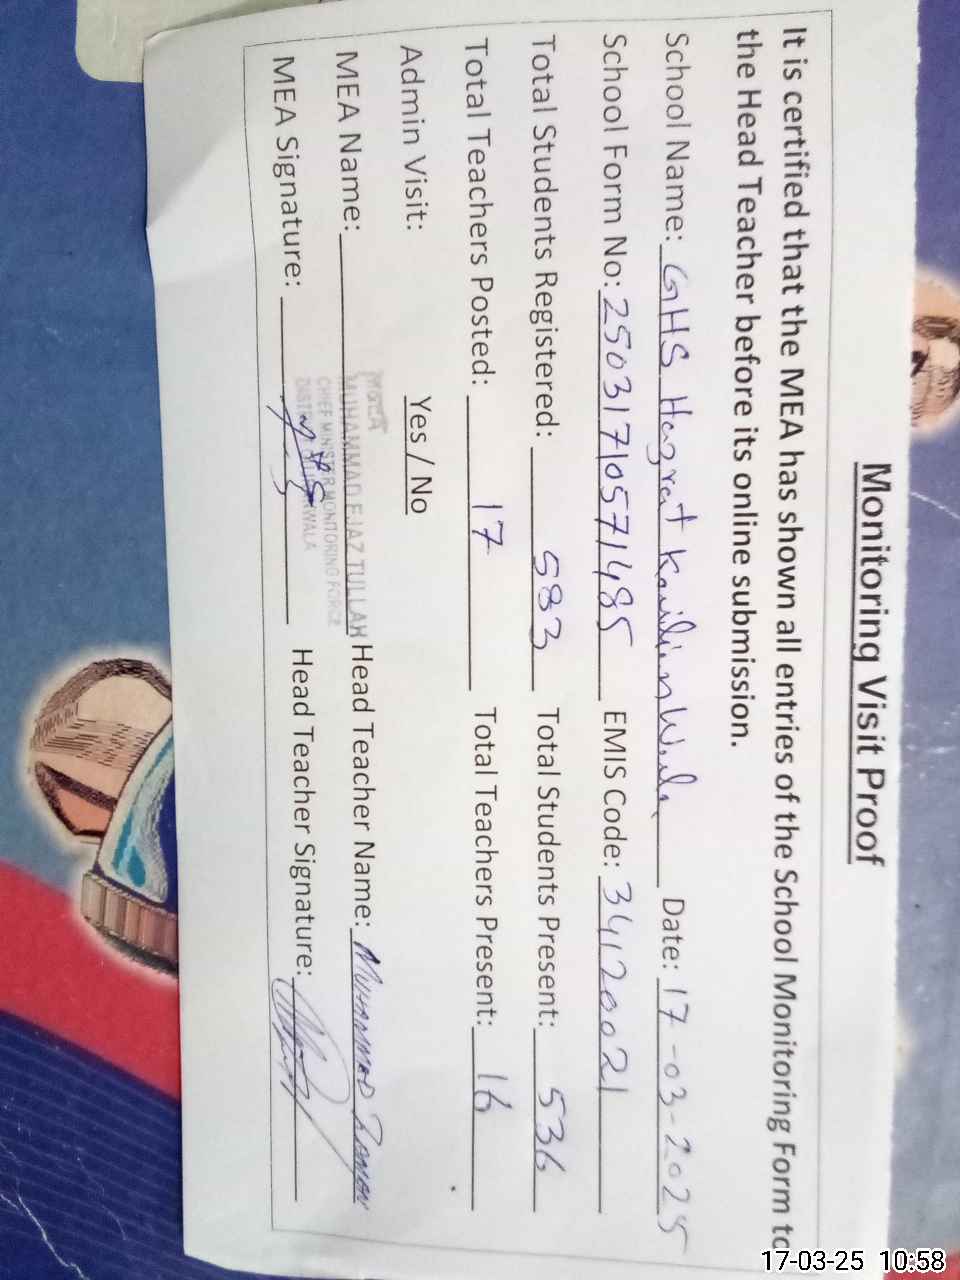 Monitoring Visit Proof
It is certified that the MEA has shown all entries of the School Monitoring Form to
the Head Teacher before its online submission.
School Name: GHS Hazrat Kailianwala Date: 17-03-2025
School Form No: 25031710571485 EMIS Code: 34120021
Total Students Registered: 583 Total Students Present: 536
Total Teachers Posted: 17 Total Teachers Present: 16
Admin Visit: Yes / No
MEA Name: MUHAMMAD EJAZ TULLAH Head Teacher Name: Muhammad
CHIEF MINISTER MONITORING FORCE
MEA Signature: Head Teacher Signature:
17-03-25 10:58